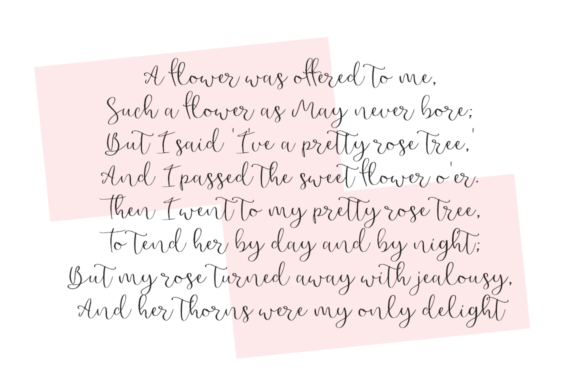 A flower was offered to me,
Such a flower as May never bore;
But I said 'I've a pretty rose tree,'
And I passed the sweet flower o'er.
Then I went to my pretty rose tree,
To tend her by day and by night;
But my rose turned away with jealousy,
And her thorns were my only delight